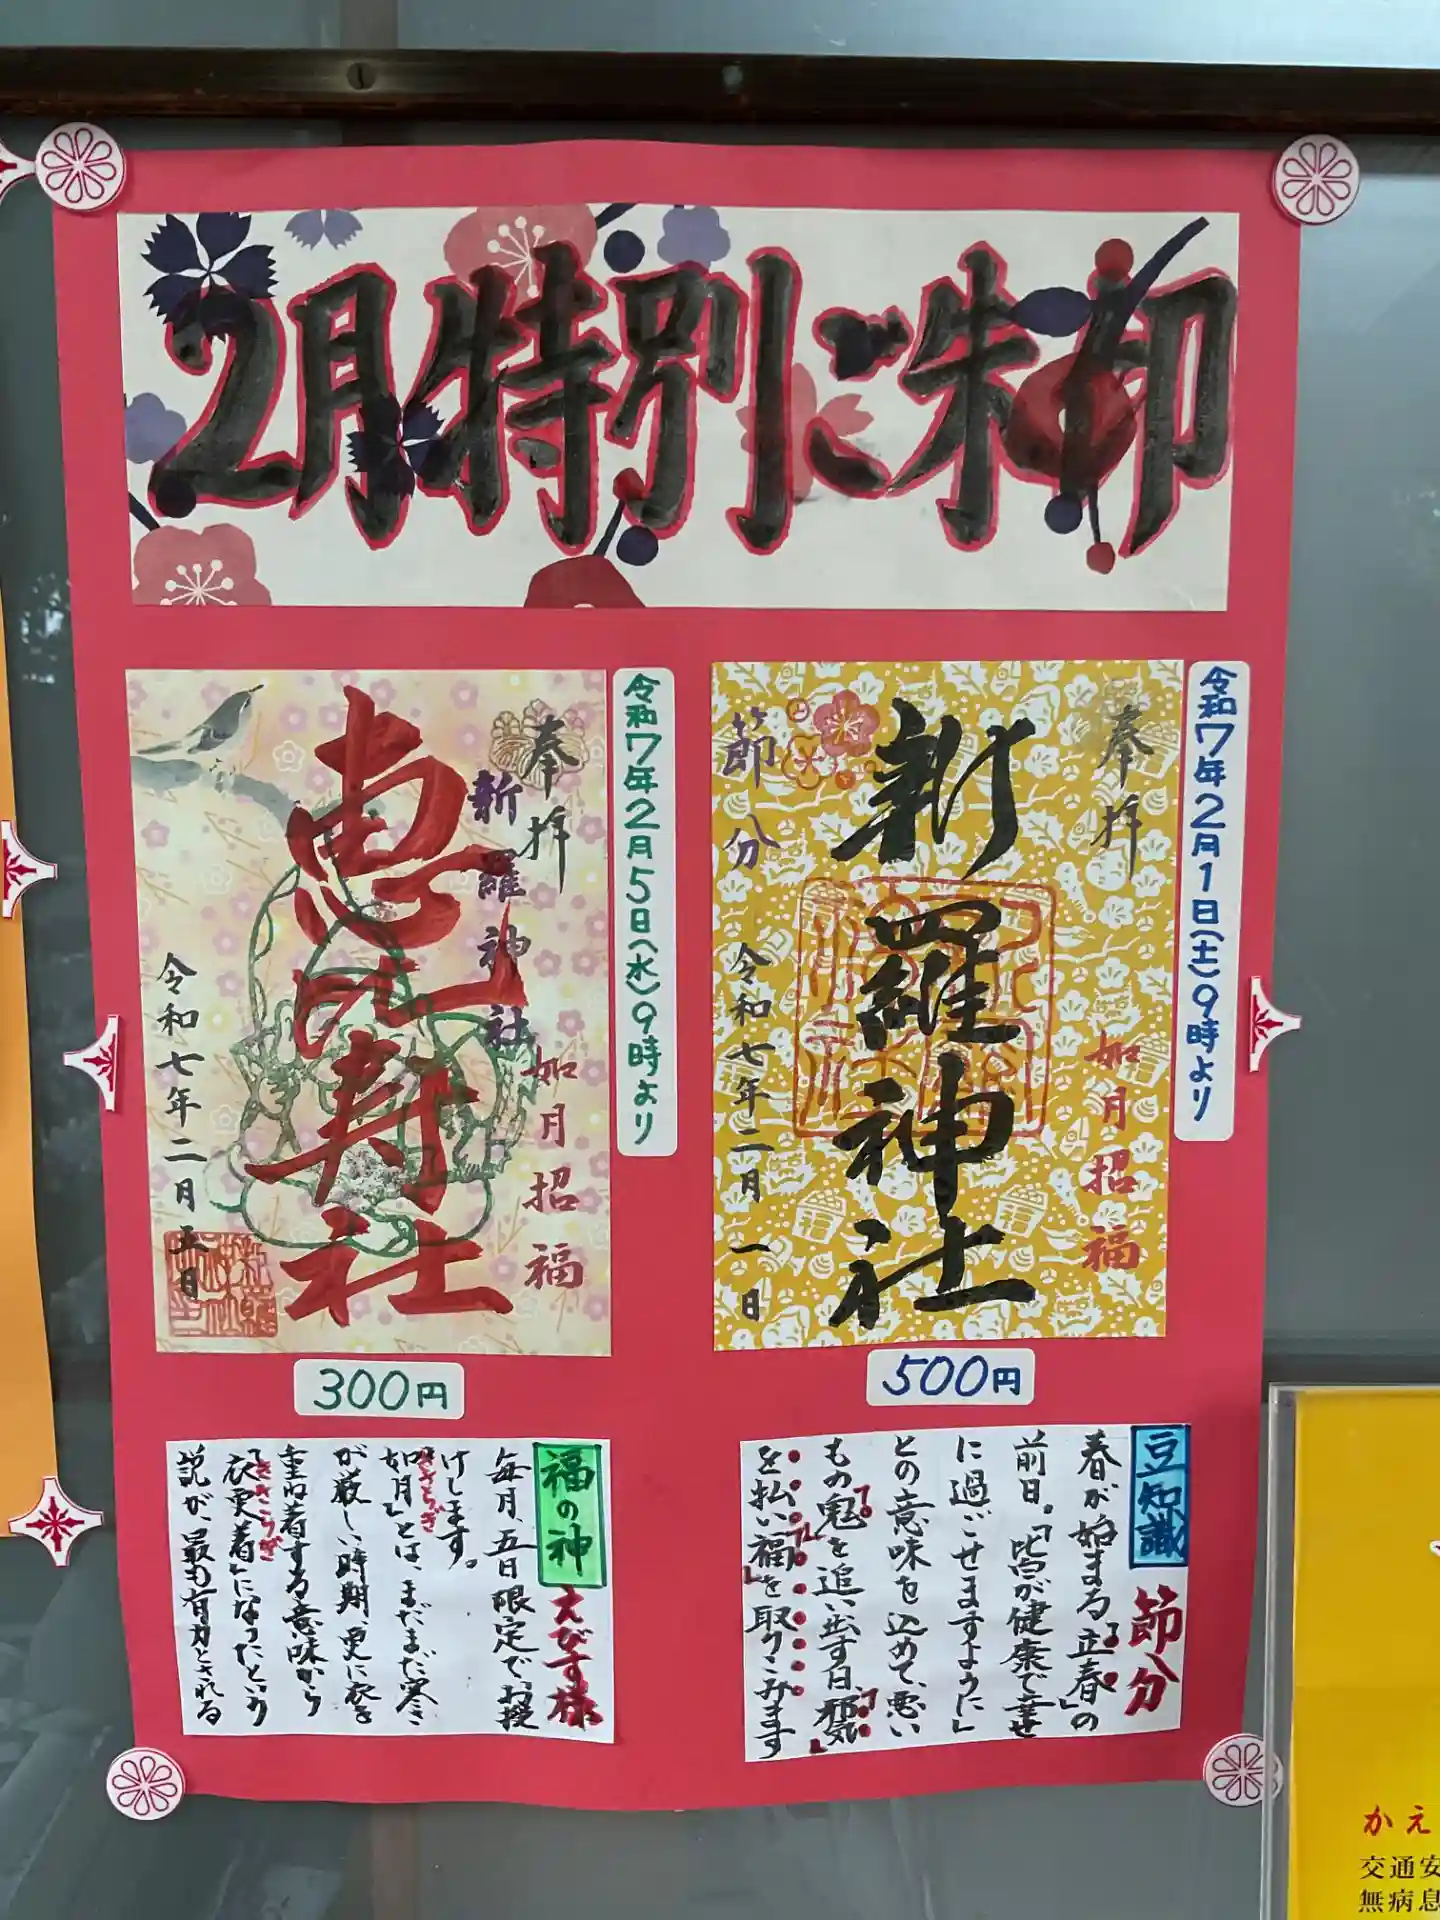 2月特別ご朱印
令和7年2月1日(土)9時より
奉拝
如月招福
新羅神社
節分
令和七年二月一日
500円
豆知識
節分
春が始まる「立春」の
前日。「皆が健康で幸せ
に過ごせますように」
との意味を込めて、悪い
もの「鬼」を追い出す日。「邪気」
を払い「福」を取りこみます
令和7年2月5日(水)9時より
奉拝
如月招福
新羅神社
恵比寿社
令和七年二月五日
300円
福の神
えびす様
毎月、五日限定で、お授
けします。
「如月」とは、まだまだ寒さ
きさらぎ
が厳しい時期、更に衣を
重ね着する意味から
「衣更着」になったという
きさらぎ
説が、最も有力とされる
福
かえ
交通安
無病息